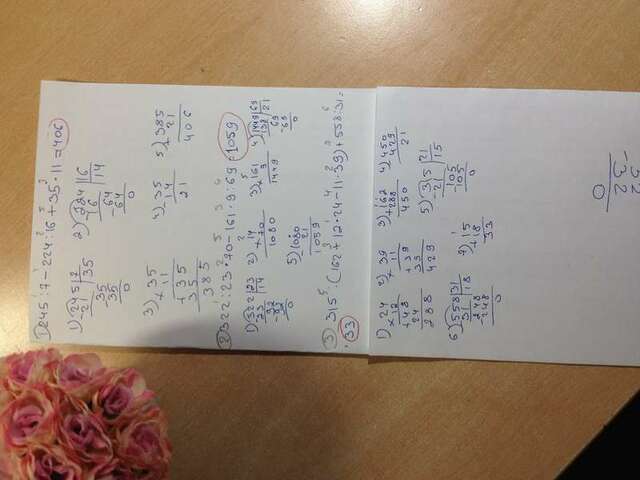 1) 245:7-224:16+35·11=406
1) 245 | 7
-21 | 35
-35
35
0
2) 224 | 16
16 | 14
-64
64
0
3) 35
× 11
+ 35
35
385
4) -35
14
21
5) +385
21
406
2) 322:23·70-161·9:69=1059
1) 322 | 23
23 | 14
-92
92
0
2) 14
× 70
1080
3) 161
× 9
1449
4) 1449 | 69
138 | 21
69
-69
0
5) -1080
21
1059
3) 315:(162+12·24-11·39)+558:31=
·33
1) 24
× 12
+48
24
288
2) 39
× 11
+39
39
429
3) +162
288
450
4) -450
429
21
5) 315 | 21
-21 | 15
-105
105
0
6) 558 | 31
31 | 18
-248
248
0
7) 15
+18
33
32
-32
0